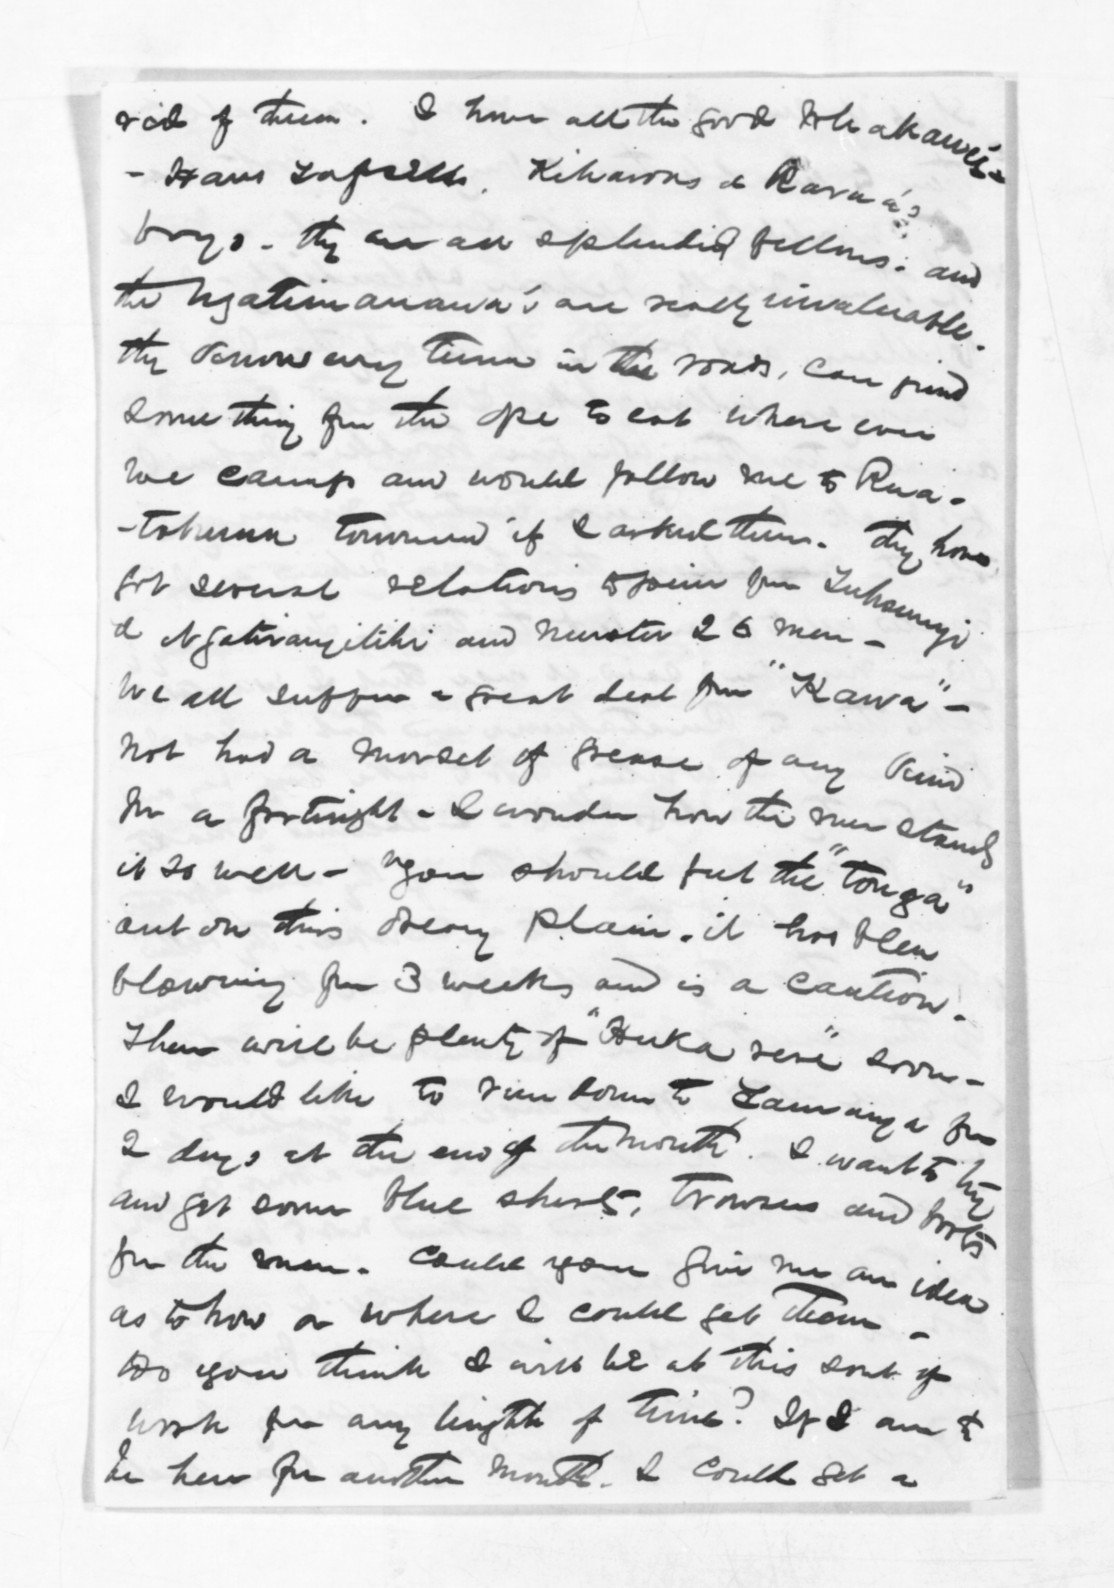 rid of them. I have all the good Whakawei-
- Hans Tapsells, Kiharoas & Rarua's
boys - they are all splendid fellows. and
the Ngatimanawa's are really invaluable.
they know every turn in the roads, can find
something for the ope to eat where ever
we camp and would follow me to Rua-
-tahuna tomorrow if I asked them. they have
got several relations to join from Tuhourangi
& Ngatirangitihi and muster 26 men -
We all suffer a great deal from "Kawa" -
not had a morsel of grease of any kind
for a fortnight - I wonder how the men stand
it so well - you should feel the "tonga"
out on this dreary plain. it has been
blowing for 3 weeks and is a caution.
There will be plenty of "Huka rere" soon -
I would like to run down to Tauranga for
2 days at the end of the month. I want to try
and get some blue shirts, trowsers and boots
for the men. Could you give me an idea
as to how or where I could get them -
Do you think I will be at this sort of
work for any length of time? If I am to
be here for another month. I could get a